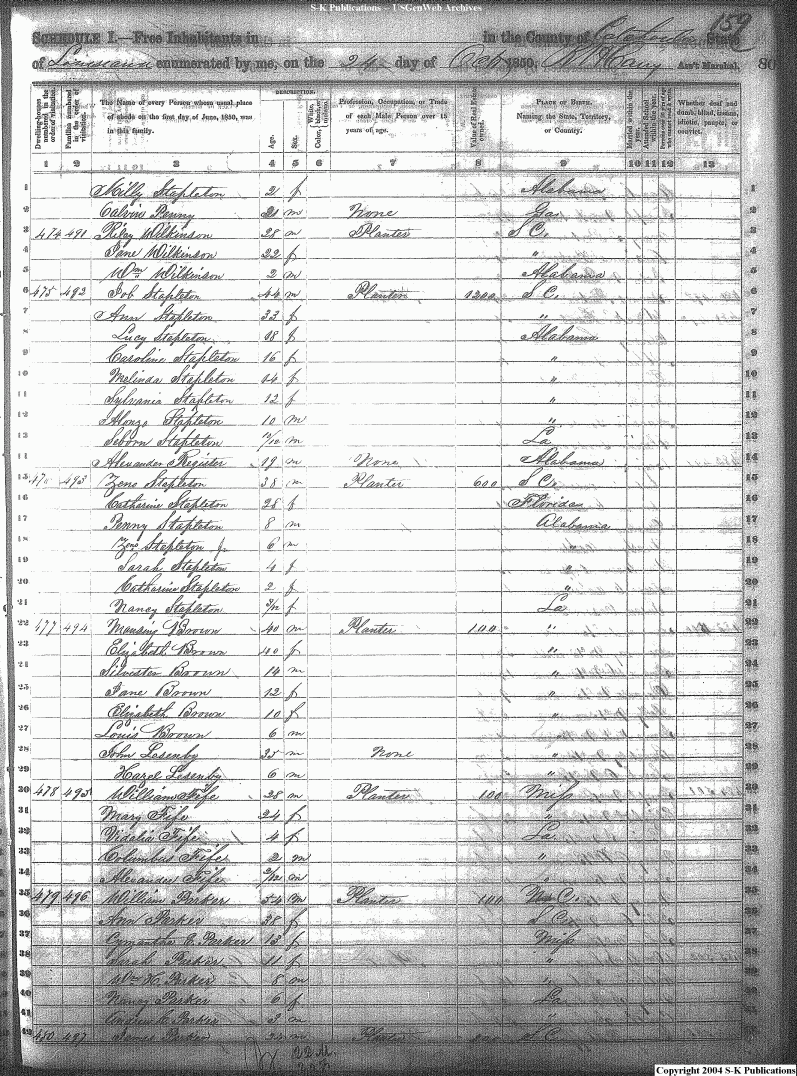 S-K Publications -- USGenWeb Archives
159
SCHEDULE I.—Free Inhabitants in in the County of Catahoula State
of Louisiana enumerated by me, on the 24 day of Oct 1850. Ass't Marshal. 80
Dwelling-houses numbered in the order of visitation.
Families numbered in the order of visitation.
The Name of every Person whose usual place of abode on the first day of June, 1850, was in this family.
DESCRIPTION.
Age.
Sex.
Color, White, black, or mulatto.
Profession, Occupation, or Trade of each Male Person over 15 years of age.
Value of Real Estate owned.
PLACE OF BIRTH. Naming the State, Territory, or Country.
Married within the year.
Attended School within the year.
Whether deaf and dumb, blind, insane, idiotic, pauper, or convict.
1 2 3 4 5 6 7 8 9 10 11 12 13
1 Milly Stapleton 2 f Alabama 1
2 Calvin Penny 21 m None Ga. 2
3 474 491 Riley Wilkinson 28 m Planter S C. 3
4 Jane Wilkinson 22 f " 4
5 Wm Wilkinson 2 m Alabama 5
6 475 492 Job Stapleton 44 m Planter 1200 S C. 6
7 Ann Stapleton 33 f " 7
8 Lucy Stapleton 18 f Alabama 8
9 Caroline Stapleton 16 f " 9
10 Melinda Stapleton 14 f " 10
11 Sylvania Stapleton 12 f " 11
12 Alonzo Stapleton 10 m " 12
13 Seborn Stapleton 7/12 m La 13
14 Alexander Register 19 m None Alabama 14
15 493 Zeno Stapleton 38 m Planter 600 S C. 15
16 Catharine Stapleton 28 f Florida 16
17 Penny Stapleton 8 m Alabama 17
18 Zeno Stapleton Jr 6 m " 18
19 Sarah Stapleton 4 f " 19
20 Catharine Stapleton 2 f " 20
21 Nancy Stapleton 3/12 f La 21
22 477 494 Mansing Brown 40 m Planter 100 " 22
23 Elizabeth Brown 40 f " 23
24 Silvester Brown 14 m " 24
25 Jane Brown 12 f " 25
26 Elizabeth Brown 10 f " 26
27 Louis Brown 6 m " 27
28 John Lesenby 35 m None " 28
29 Hazel Lesenby 6 m " 29
30 478 495 William Fife 28 m Planter 100 Miss 30
31 Mary Fife 24 f " 31
32 Vidalia Fife 4 f La 32
33 Columbus Fife 2 m " 33
34 Alexander Fife 2/12 m " 34
35 479 496 William Parker 54 m Planter 100 C. 35
36 Ann Parker 38 f S C. 36
37 Cymantha C. Parker 13 f Miss 37
38 Sarah Parker 11 f " 38
39 Wm H. Parker 8 m " 39
40 Nancy Parker 6 f La 40
41 Andrew Parker 3 m " 41
42 480 497 James Parker m Planter S C 42
22 M.
Copyright 2004 S-K Publications